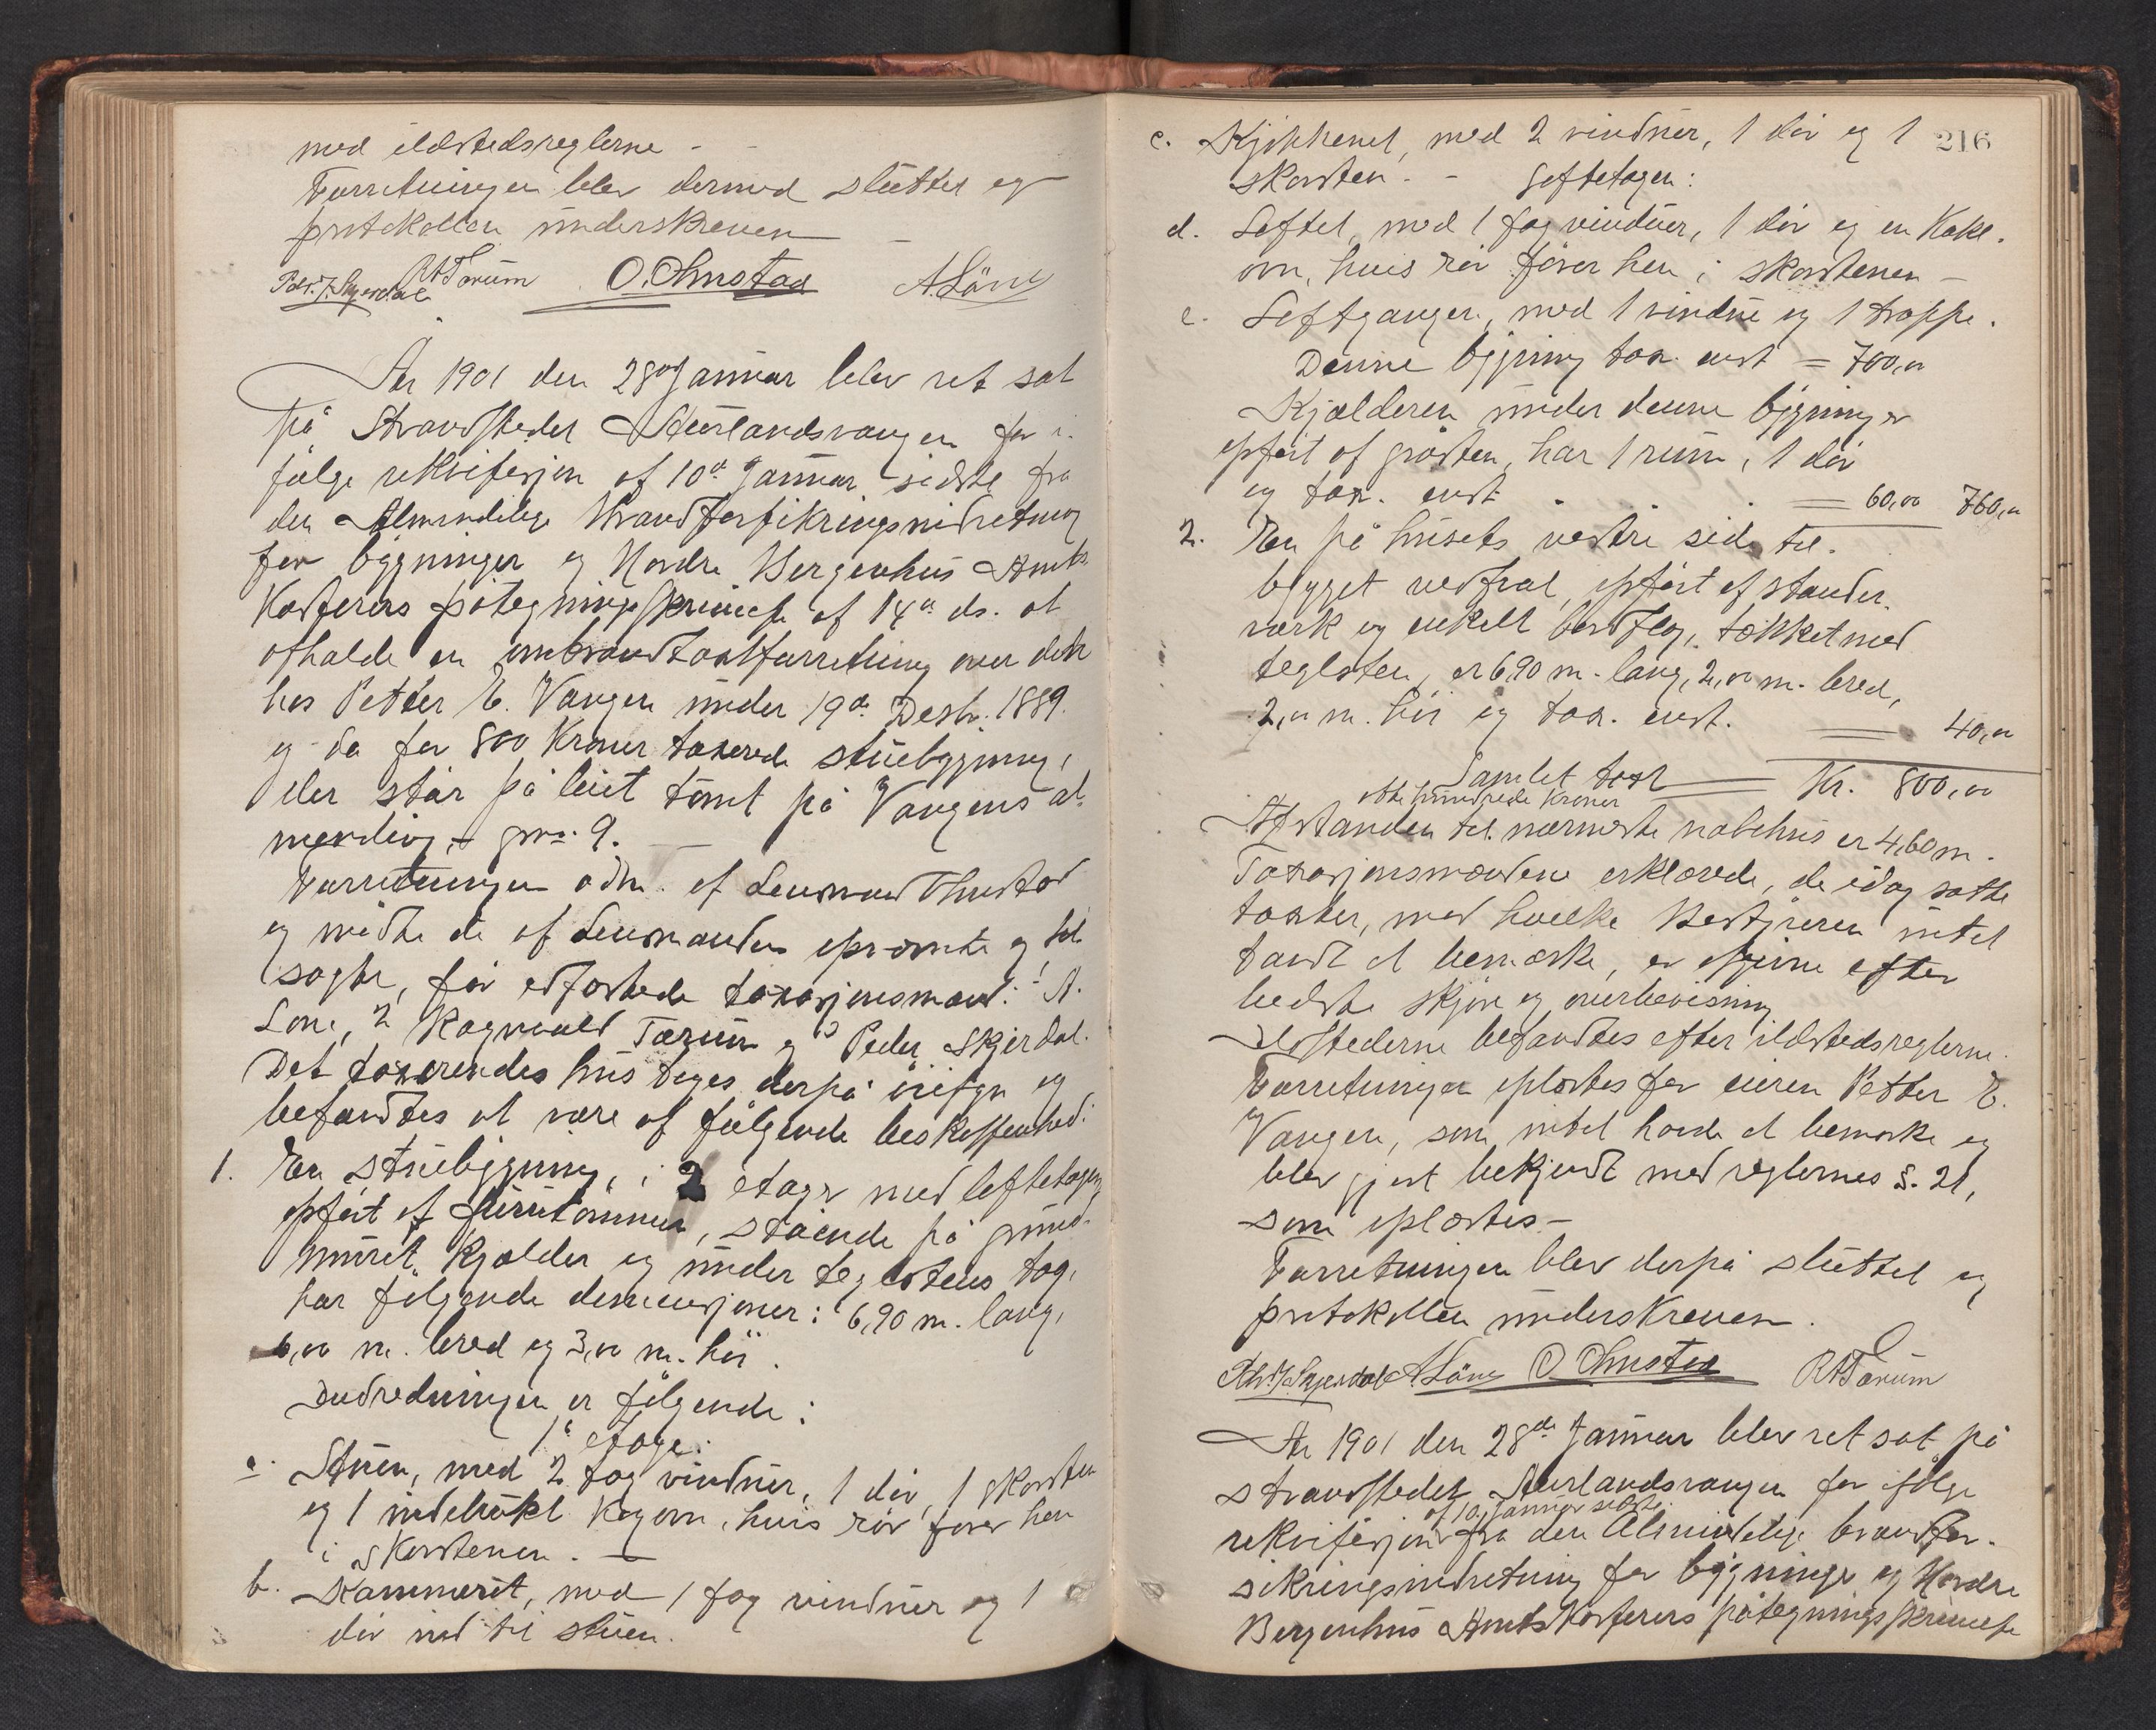 med ildstedsreglerne -
Forretningen blev dermed sluttet og
protokollen underskreven
Peder J. Skjerdal RATærum O. Ohnstad A. Låni
År 1901 den 28de Januar blev ret sat
på Strandstedet Aurlandsvangen for i-
følge rekvisisjon af 10de Januar sidste fra
den Almindelige Brandforsikringsindretning
for bygninger og Nordre Bergenhus Amts
Kasserers påtegningsskrivelse af 14de ds. at
afholde en ombrandtaxtforretning over det
hos Petter E. Vangen under 19de Desbr. 1889
og da for 800 Kroner taxerede stuebygning,
der står på leiet tomt på Vangens al-
mending - gno. 9.
Forretningen adm. af Lensmand Ohnstad
og mødte de af Lensmanden opnævnte og til-
sagte, før edfæstede taxasjonsmænd: 1 A.
Loni, 2 Ragnvald Tærum og 3 Peder Skjerdal.
Det taxerendes hus toges derpå i öiesyn og
befandtes at være af følgende beskaffenhed:
1. En stuebygning, i 2 etager med loftetagen,
opført af furutømmer, stående på grund-
muret Kjælder og under teglstens tag,
har følgende dimensjoner: 6,90 m. lang,
6,00 m. bred og 3,00 m. høi.
Indredningen er følgende:
1e etage:
a. Stuen, med 2 fag vinduer, 1 dør, 1 skorsten
og 1 indebukt Kogeovn, hvis rør fører hen
i Skorstenen. -
b. Kammerset, med 1 fag vinduer og 1
dør ind til stuen.
216
c. Kjøkkenet, med 2 vinduer, 1 dør og 1
skorsten. - Loftetagen:
d. Loftet, med 1 fag vinduer, 1 dør og en Kakel-
ovn, hvis rør fører hen i skorstenen -
e. Loftgangen, med 1 vindue og 1 trappe.
Denne bygning tax. enst = 700,00
Kjælderen under denne bygning er
opført af gråsten, har 1 rum, 1 dør
og tax. enst. = 60,00 760,00
2. En på husets vestre side til-
bygget vedskål, opført af stander-
værk og enkelt bordklæd, tækket med
teglsten, er 6,90 m. lang, 2,00 m. bred,
2,00 m. høi og tax. enst. = 40,00
Samlet taxt = Kr. 800,00
otte hundrede Kroner
Afstanden til nærmeste nabohus er 4,60 m.
Taxasjonsmændene erklærede, de idag satte
taxter, med hvilke Bestyreren intet
fandt at bemærke, er afgivne efter
bedste skjøn og overbevisning
Ildstederne befandtes efter ildstedsreglerne.
Forretningen oplæstes for eieren Petter E.
Vangen, som intet havde at bemærke og
blev gjort bekjendt med reglernes §. 21,
som oplæstes -
Forretningen blev derpå sluttet og
protokollen underskreven.
Pedr. J. Skjerdal A Låni O Ohnstad RATærum
År 1901 den 28de Januar blev ret sat på
strandstedet Aurlandsvangen for ifølge
af 10 Januar sidste
rekvisisjon fra den Almindelige brandfor-
sikringsindretning for bygninger og Nordre
Bergenhus Amtskasserers påtegningsskrivelse